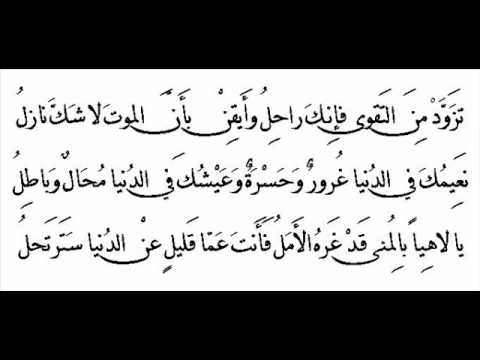 تَزَوَّدْ مِنَ التَقوى فإِنكَ رَاحِلُ وأَيقِنْ بأَنَّ الموتَ لا شكَّ نازلُ
نَعِيمُكَ في الدُنيا غُرورٌ وَحَسْرَةٌ وَعَيْشُكَ في الدُنيا مُحَالٌ وبَاطِلُ
يا لاهياً بالِمُنى قَدْ غَرَه الأَمَلُ فَأَنتَ عَمّا قَليلٍ عنْ الدُنيا سَتَرتَحلُ